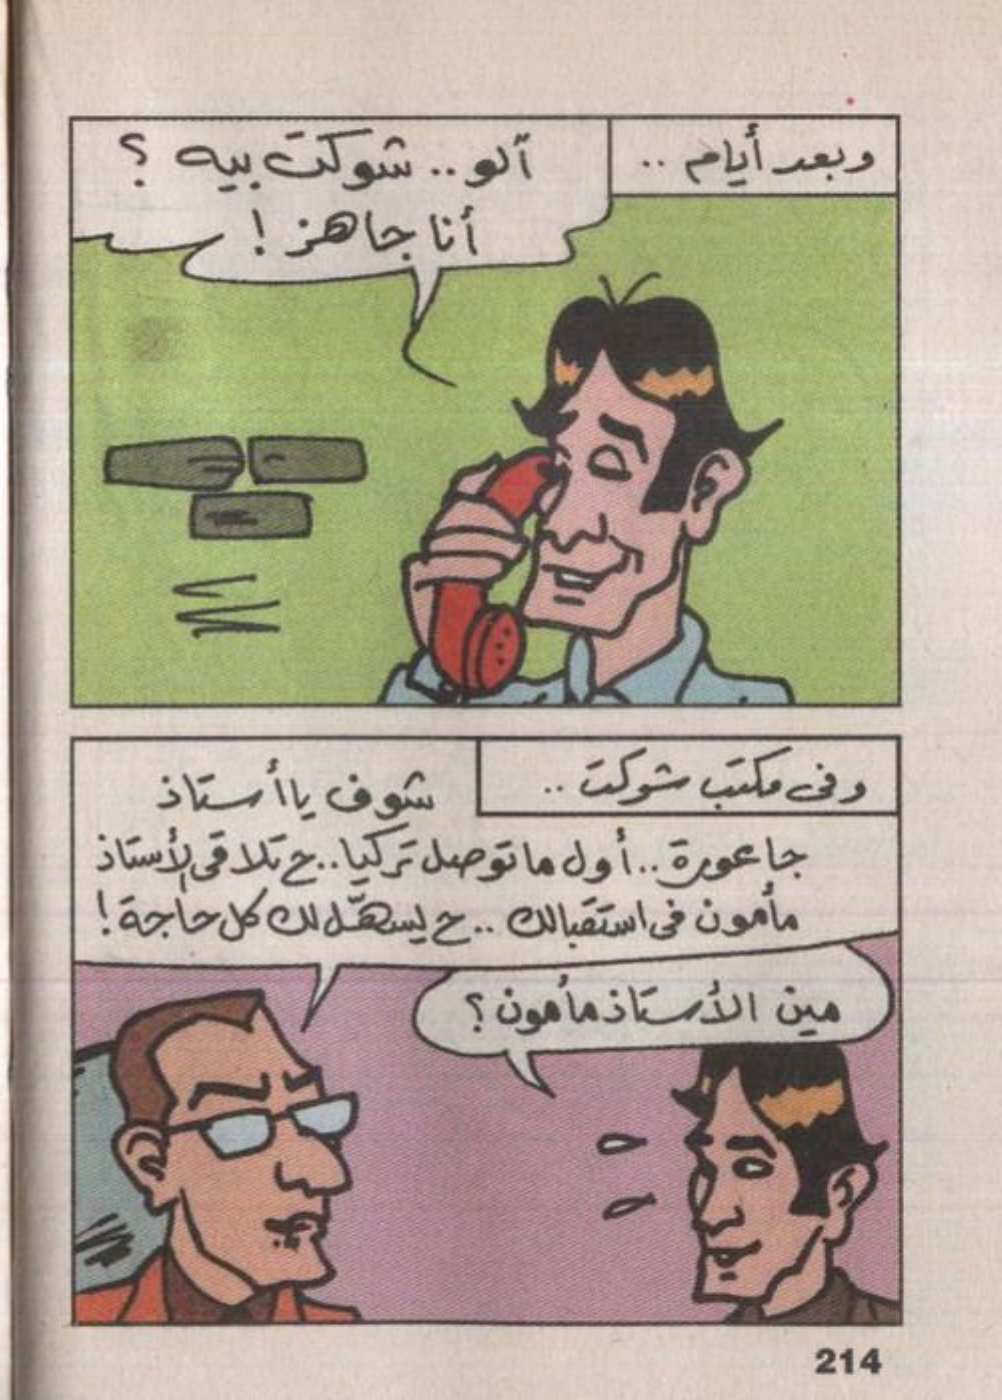 وبعد أيام ..
آلو .. شوكت بيه ؟
أنا جاهز !
وفى مكتب شوكت ..
شوف يا أستاذ
جاعورة .. أول ما توصل تركيا .. ح تلاقى الأستاذ
مأمون فى استقبالك .. ح يسهّل لك كل حاجة !
مين الأستاذ مأمون ؟
214